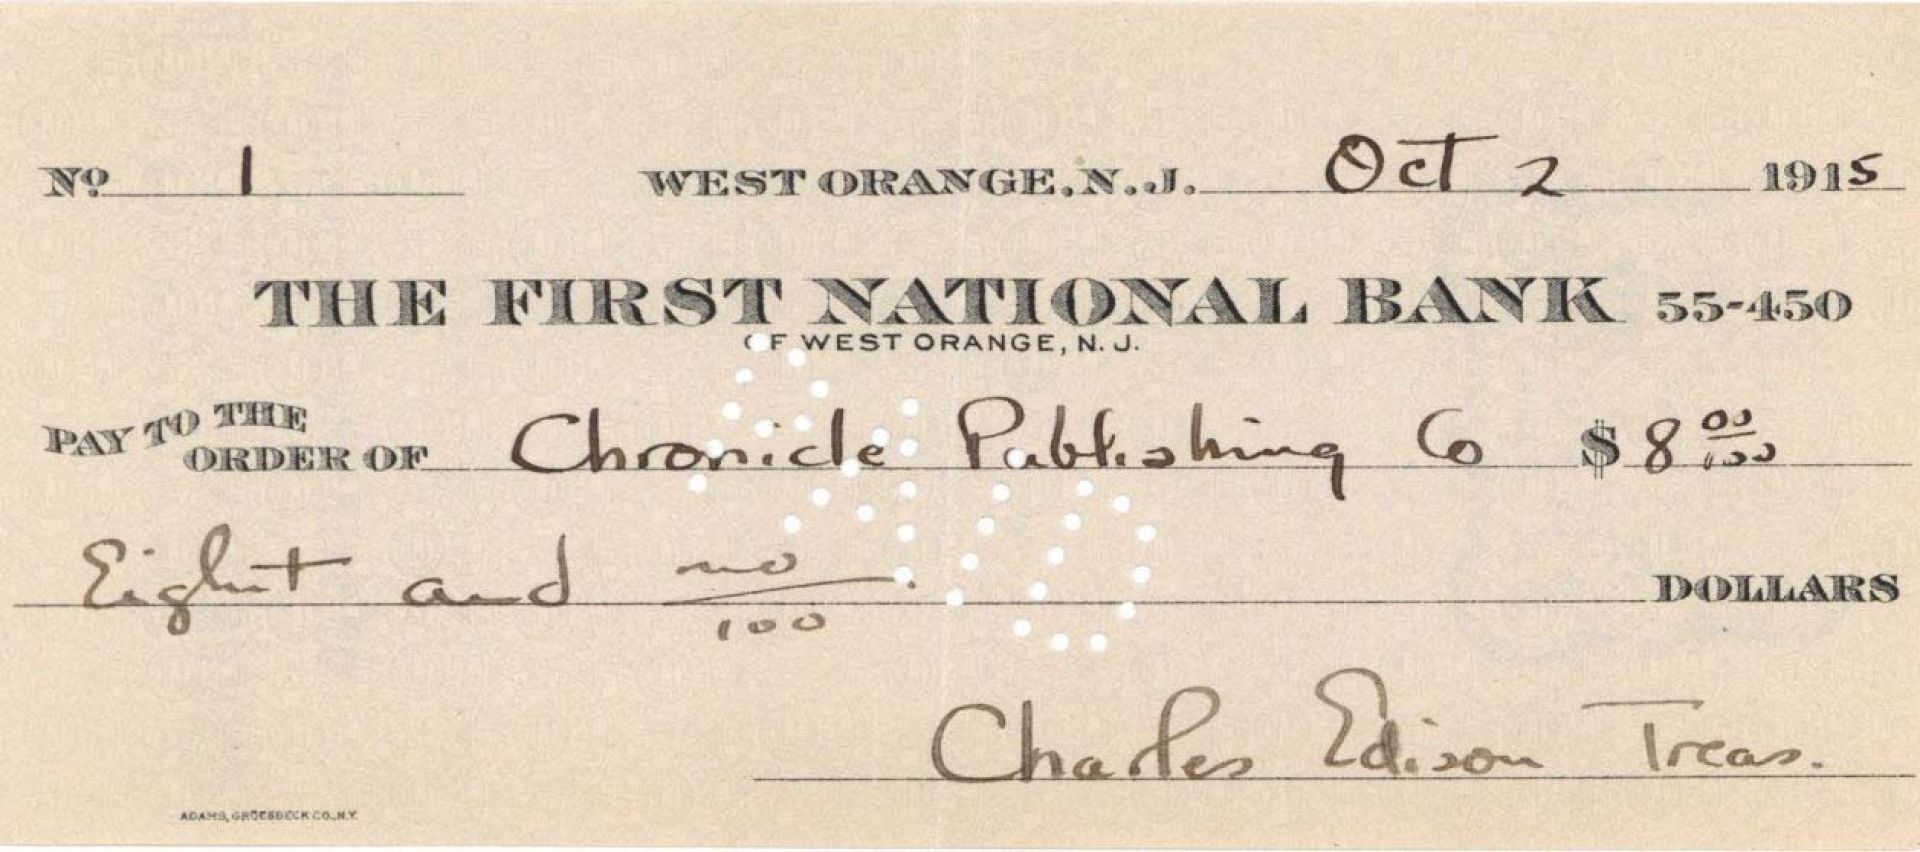 No 1 WEST ORANGE, N. J. Oct 2 1915
THE FIRST NATIONAL BANK 55-450
OF WEST ORANGE, N. J.
PAY TO THE ORDER OF Chronicle Publishing Co $ 8 00/100
Eight and no/100 DOLLARS
Charles Edison Treas.
ADAMS, GROESBECK CO., N.Y.
PAID